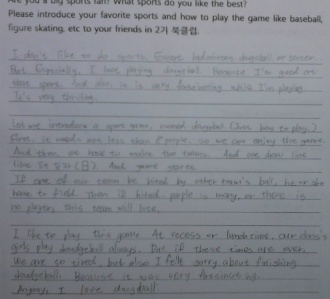 Are you a big sports fan? What sports do you like the best?
Please introduce your favorite sports and how to play the game like baseball,
figure skating, etc to your friends in 2기 북클럽.
I don't like to do sports, badminton, dodgeball or soccer.
But Especially, I love playing dodgeball. Because I'm good at
this sport. And also, it is very fascinating while I'm playing
It's very thrilling.
Let me introduce a sport game, named dodgeball (Just how to play.)
First, it needs not less than people, so we can enjoy the game
And then, we have to make two teams. And we draw line
like (日) And game starts.
If one of our team be hitted by other team's ball, he or she
have to field. Then if hitted people is many, or there is
no player, this team will lose.
I like to play this game. At recess or lunch time, our class's
girls play dodgeball always. But if these times are over,
We are so tired, but also I felt sorry about finishing
dodgeball. Because it was very fascinating.
Anyway, I love dodgeball!